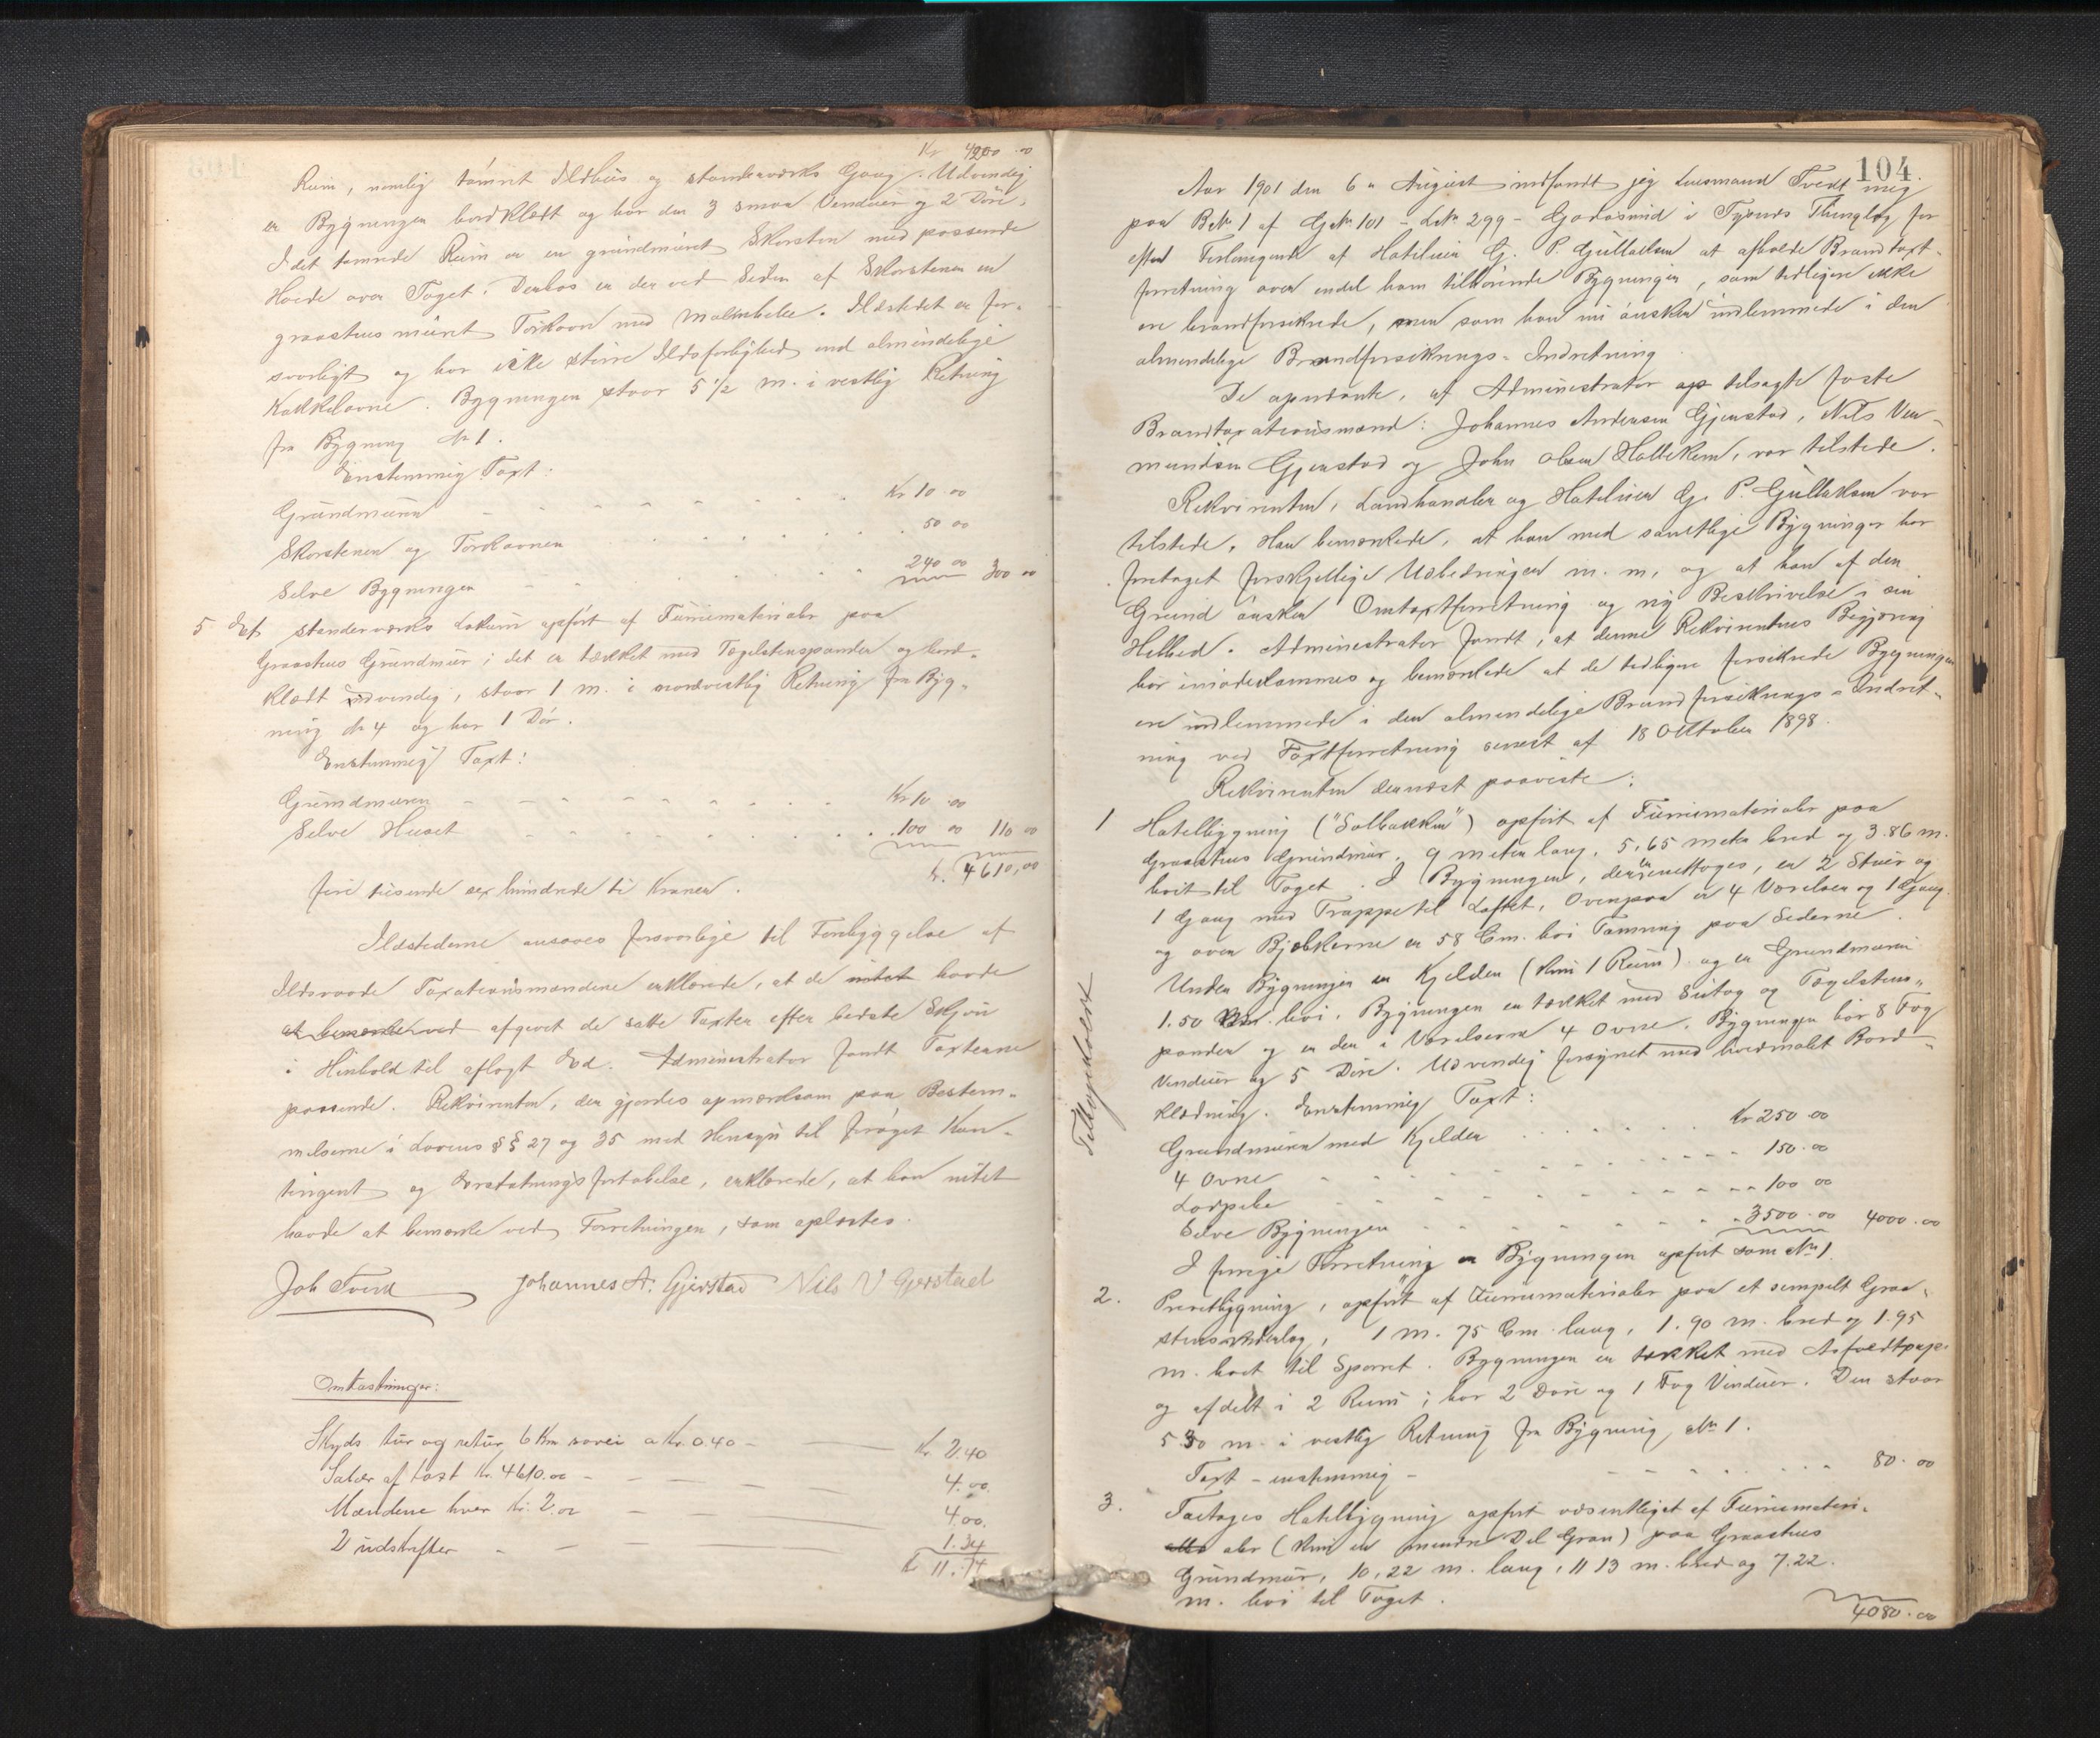 Kr 4200.00
Rum, nemlig tømret Ildhus og standerværks Gang. Udvendig
er Bygningen bordklædt og har den 3 smaa Vinduer og 2 Døre.
I det tømrede Rum er en grundmuret Skorsten med passende
Høide over Taget. Derhos er der ved Siden af Skorstenen en
graastens muret Torkovn med . Ildstedet er for-
svarligt og har ikke større Ildsfarlighed end almindelige
Kakkelovne. Bygningen staar 5 1/2 m. i vestlig Retning
fra Bygning № 1.
Enstemmig Taxt:
Grundmuren - - - - Kr 10.00
Skorstenen og Torkovnen . . . . 50 00
Selve Bygningen - . . . 240 00 300 00
5 Et standerværks Lokum opført af Furumaterialer paa
Graastens Grundmur; det er tækket med Tegelstenspander og bord-
klædt udvendig, staar 1 m. i nordvestlig Retning fra Byg-
ning № 4 og har 1 Dør.
Enstemmig Taxt:
Grundmuren - - - - Kr 10.00
Selve Huset - - - - 100 00 110 00
Kr. 4610,00
fire tusende sex hundrede ti Kroner.
Ildstederne ansaaes forsvarlige til Forebyggelse af
Ildsvaade Taxationsmændene erklærede, at de intet havde
at bemærke ved afgivet de satte Taxter efter bedste Skjøn
i Henhold til aflagt Ed. Administrator fandt Taxterne
passende. Rekvirenten, der gjordes opmærksom paa Bestem-
melserne i Lovens §§ 27 og 35 med Hensyn til forøget Kon-
tingent og Erstatnings fortabelse, erklærede, at han intet
havde at bemærke ved Forretningen, som oplæstes.
Joh Tvedt Johannes A. Gjerstad Nils V Gjerstad
Omkostninger:
Skyds tur og retur 6 Km søvei a Kr. 0.40 - Kr 2.40
Salær af taxt Kr. 4610.00 - - - 4.00.
Mændene hver Kr. 2.00 - - 4.00.
2 udskrifter - - - 1.34
Kr 11.74
104.
Aar 1901 den 6te August indfandt jeg Lensmand Tvedt mig
paa B№ 1 af G№ 101 - L№ 299 - Godøsund i Tysnes Thinglag for
efter Forlangende af Hoteleier G. P. Gullaksen at afholde Brandtaxt-
forretning over endel ham tilhørende Bygninger, som tidligere ikke
ere brandforsikrede, men som han nu ønsker indlemmede i den
almindelige Brandforsikrings-Indretning
De opnævnte, af Administrator op tilsagte faste
Brandtaxationsmænd: Johannes Andersen Gjerstad, Nils Vem-
mundsen Gjerstad og John Olsen Hallekem, var tilstede.
Rekvirenten, Landhandler og Hoteleier G. P. Gullaksen var
tilstede. Han bemærkede, at han med samtlige Bygninger har
foretaget forskjellige Udbedringer m. m. og at han af den
Grund ønsker Omtaxtforretning og ny Beskrivelse i sin
Helhed. Administrator fandt, at denne Rekvirentens Begjæring
bør imødekommes og bemærkede at de tidligere forsikrede Bygninger
ere indlemmede i den almindelige Brandforsikrings-Indret-
ning ved Taxtforretning senest af 18 Oktober 1898.
Rekvirenten dernæst paaviste:
1 Hotelbygning ("Solbakken") opført af Furumaterialer paa
Graastens Grundmur, 9 meter lang, 5,65 meter bred og 3.86 m.
høit til Taget. I Bygningen, der er enettages, er 2 Stuer og
1 Gang med Trappe til Loftet, Ovenpaa er 4 Værelser og 1 Gang.
og over Bjelkerne er 58 Cm. høi Tømring paa Siderne.
Under Bygningen er Kjelder (kun 1 Rum) og er Grundmuren
1.50 m. høi. Bygningen er tækket med Sutag og Tegelstens-
pander og er der i Værelserne 4 Ovne. Bygningen har 8 Fag
Vinduer og 5 Døre. Udvendig forsynet med hvidmalet Bord-
klædning. Enstemmig Taxt:
Grundmuren med Kjelder . . . . . Kr 250.00
4 Ovne - - - - 150.00
- - - - 100 00
Selve Bygningen - - - - 3500.00 4000.00
I forrige Forretning er Bygningen opført som № 1.
Tilkopieret
2. Privetbygning, opført af Furumaterialer paa et simpelt Graa-
stensunderlag, 1 m. 75 Cm. lang, 1.90 m. bred og 1.95
m. høit til Sparret. Bygningen er tækket med Asfaltpap
og afdelt i 2 Rum; har 2 Døre og 1 Fag Vinduer. Den staar
5.30 m. i vestlig Retning fra Bygning № 1.
Taxt - enstemmig - - - - 80.00
3. Toetages Hotelbygning opført væsentligst af Furumateri-
aler (kun en mindre Del Gran) paa Graastens
Grundmur, 10,22 m. lang, 11 13 m. bred og 7.22.
m. høi til Taget.
4080.00